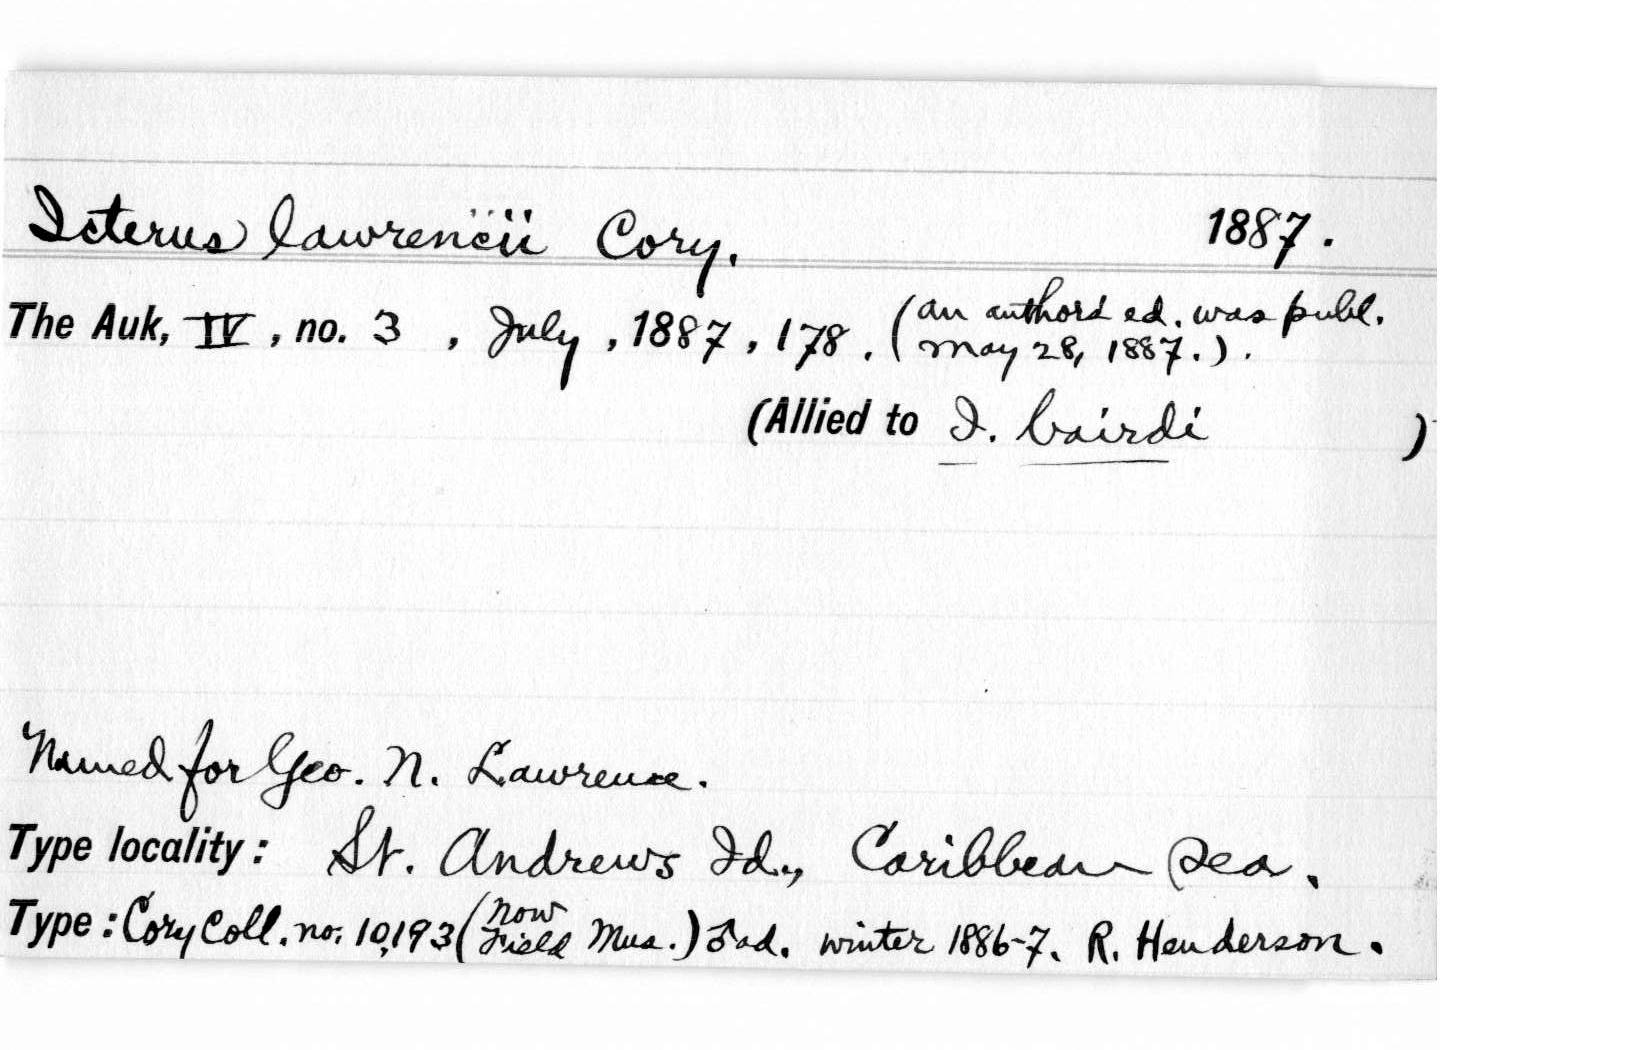 Icterus lawrencii Cory. 1887.
The Auk, IV, no. 3, July, 1887, 178. (an author's ed. was publ.
May 28, 1887.).
(Allied to I. bairdi )
Named for Geo. N. Lawrence.
Type locality: St. Andrews Id., Caribbean Sea.
Type: Cory Coll. no. 10,193 (now
Field Mus.) ♂ ad. winter 1886-7. R. Henderson.